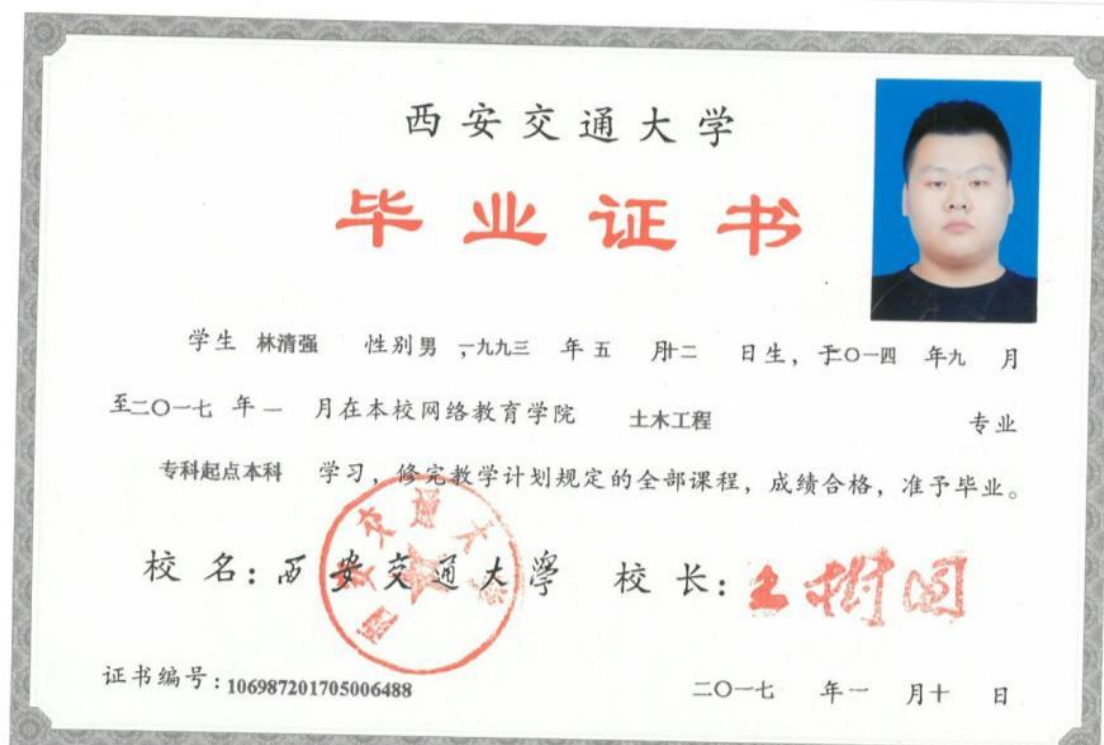 西安交通大学
毕业证书
学生 林清强 性别男,一九九三 年 五 月十二 日生，于二〇一四 年九 月
至二〇一七 年 一 月在本校网络教育学院 土木工程 专业
专科起点本科 学习，修完教学计划规定的全部课程，成绩合格，准予毕业。
校 名：西安交通大學 校 长：王树国
西安交通大学
证书编号：106987201705006488 二〇一七 年 一 月十 日